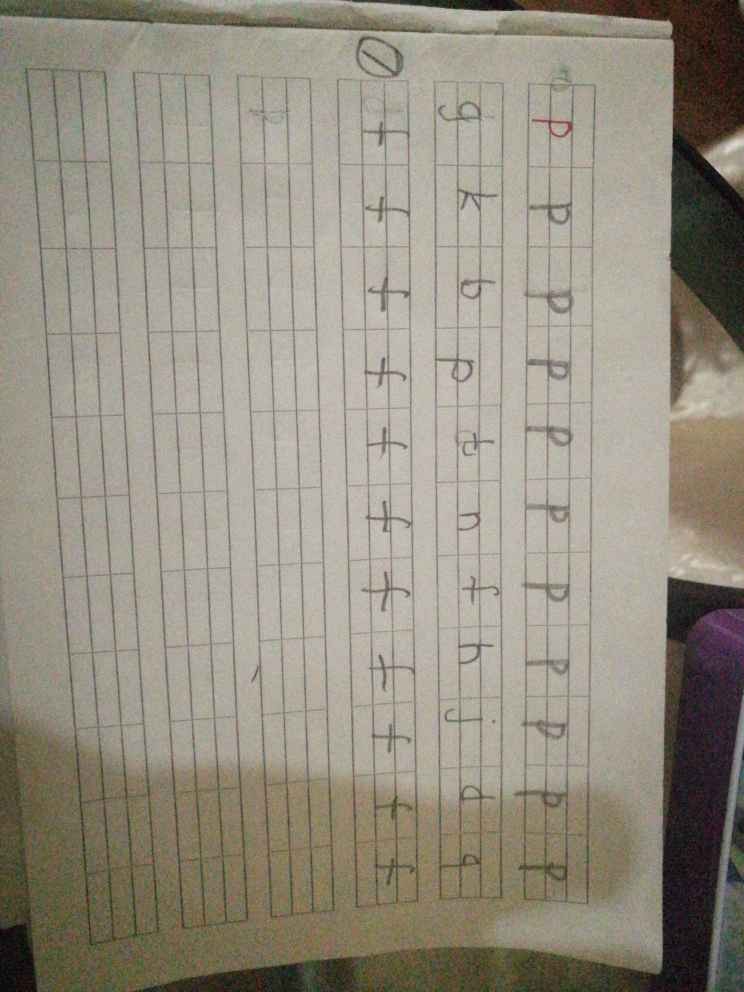 p p p p p p p p p p p
g k b p t n f h j d q
① f f f f f f f f f f f